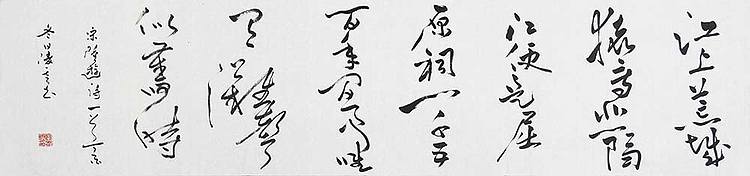 江上荒城
猿鳥悲隔
江便是屈
原祠一千五
百年間事唯
有灘聲
似舊時
宋陸游詩一首
冬日